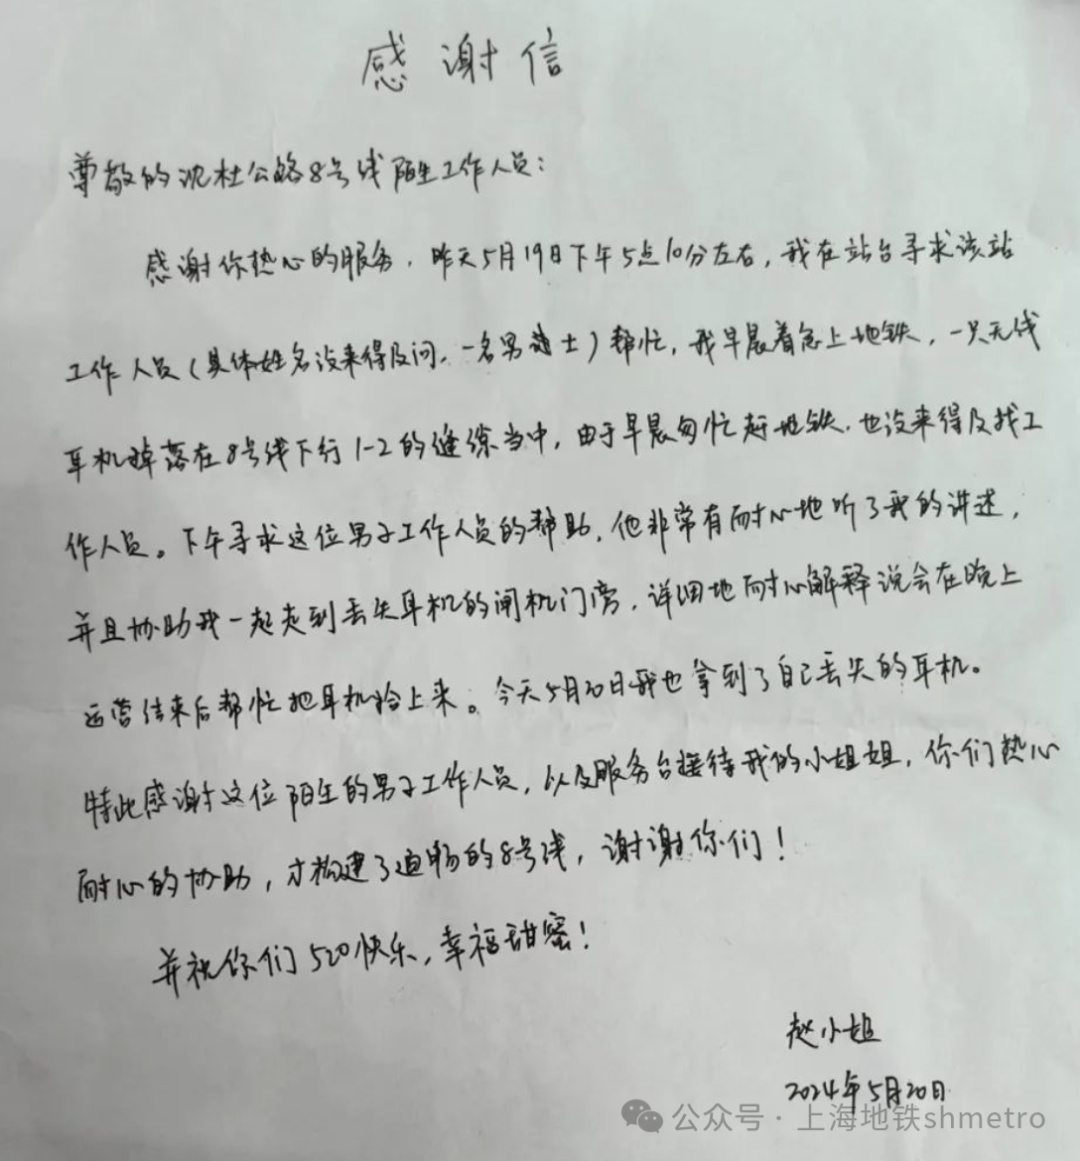 感谢信
尊敬的沈杜公路8号线陌生工作人员:
感谢你热心的服务,昨天5月19日下午5点10分左右,我在站台寻求该站
工作人员(具体姓名没来得及问,一名男士)帮忙,我早晨着急上地铁,一只无线
耳机掉落在8号线下行1-2的缝隙当中,由于早晨匆忙赶地铁,也没来得及找工
作人员。下午寻求这位男子工作人员的帮助,他非常有耐心地听了我的讲述,
并且协助我一起走到丢失耳机的闸机门旁,详细地耐心解释说会在晚上
运营结束后帮忙把耳机捡上来。今天5月20日我也拿到了自己丢失的耳机。
特此感谢这位陌生的男子工作人员,以及服务台接待我的小姐姐,你们热心
耐心的协助,才构建了通畅的8号线,谢谢你们!
并祝你们520快乐,幸福甜蜜!
赵小姐
2024年5月20日
公众号·上海地铁shmetro